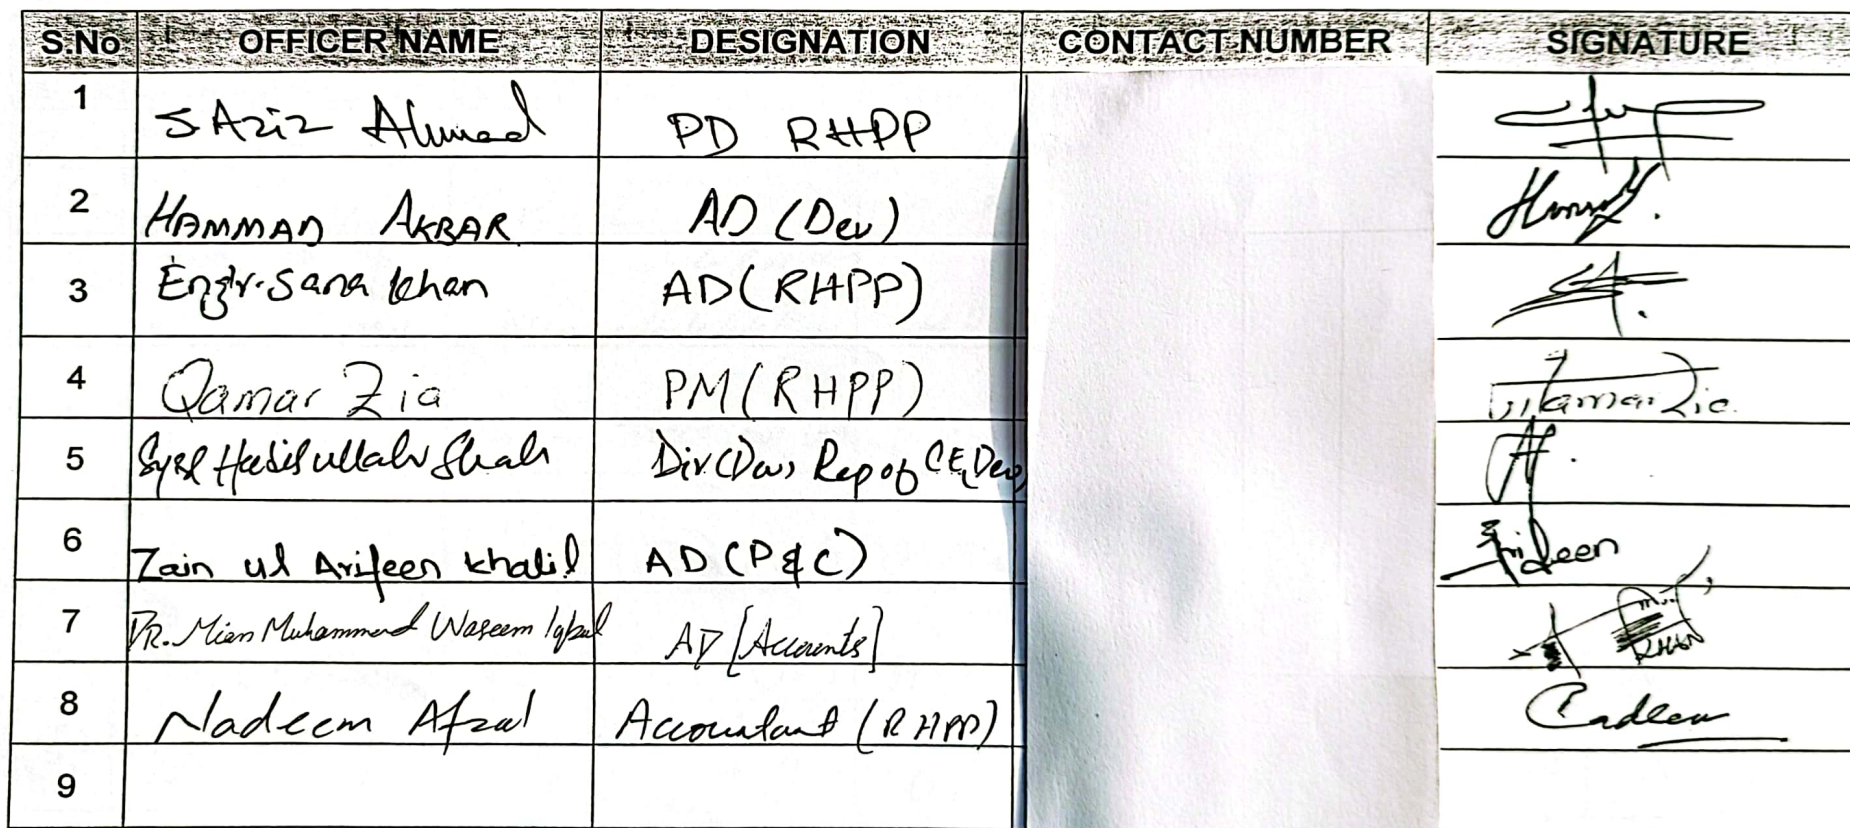 S.No OFFICER NAME DESIGNATION CONTACT NUMBER SIGNATURE
1 S Aziz Ahmad PD RHPP
2 HAMMAD AKBAR AD (Dev)
3 Engr. Sana Khan AD (RHPP)
4 Qamar Zia PM (RHPP) Qamar Zia
5 Syed Habib ullah Shah Dir (Dev) Rep of CE(Dev)
6 Zain ul Arifeen Khalil AD (P&C) Arifeen
7 DR. Mian Muhammad Waseem Iqbal AD [Accounts] KHAN
8 Nadeem Afzal Accountant (RHPP)
9